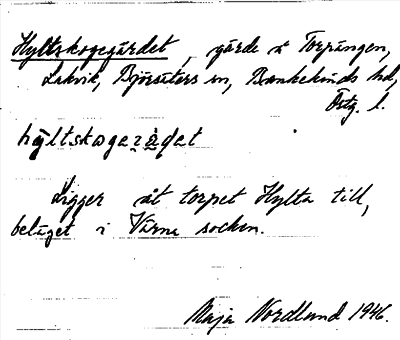 Hyltskogegärdet, gärde å Torpängen,
Lakvik, Björsäters sn, Bankekinds hd,
Östg. l.
hyltskogeꞡä̀ḍat
Ligger åt torpet Hylta till,
beläget i Värna socken.
Maja Nordlund 1946.